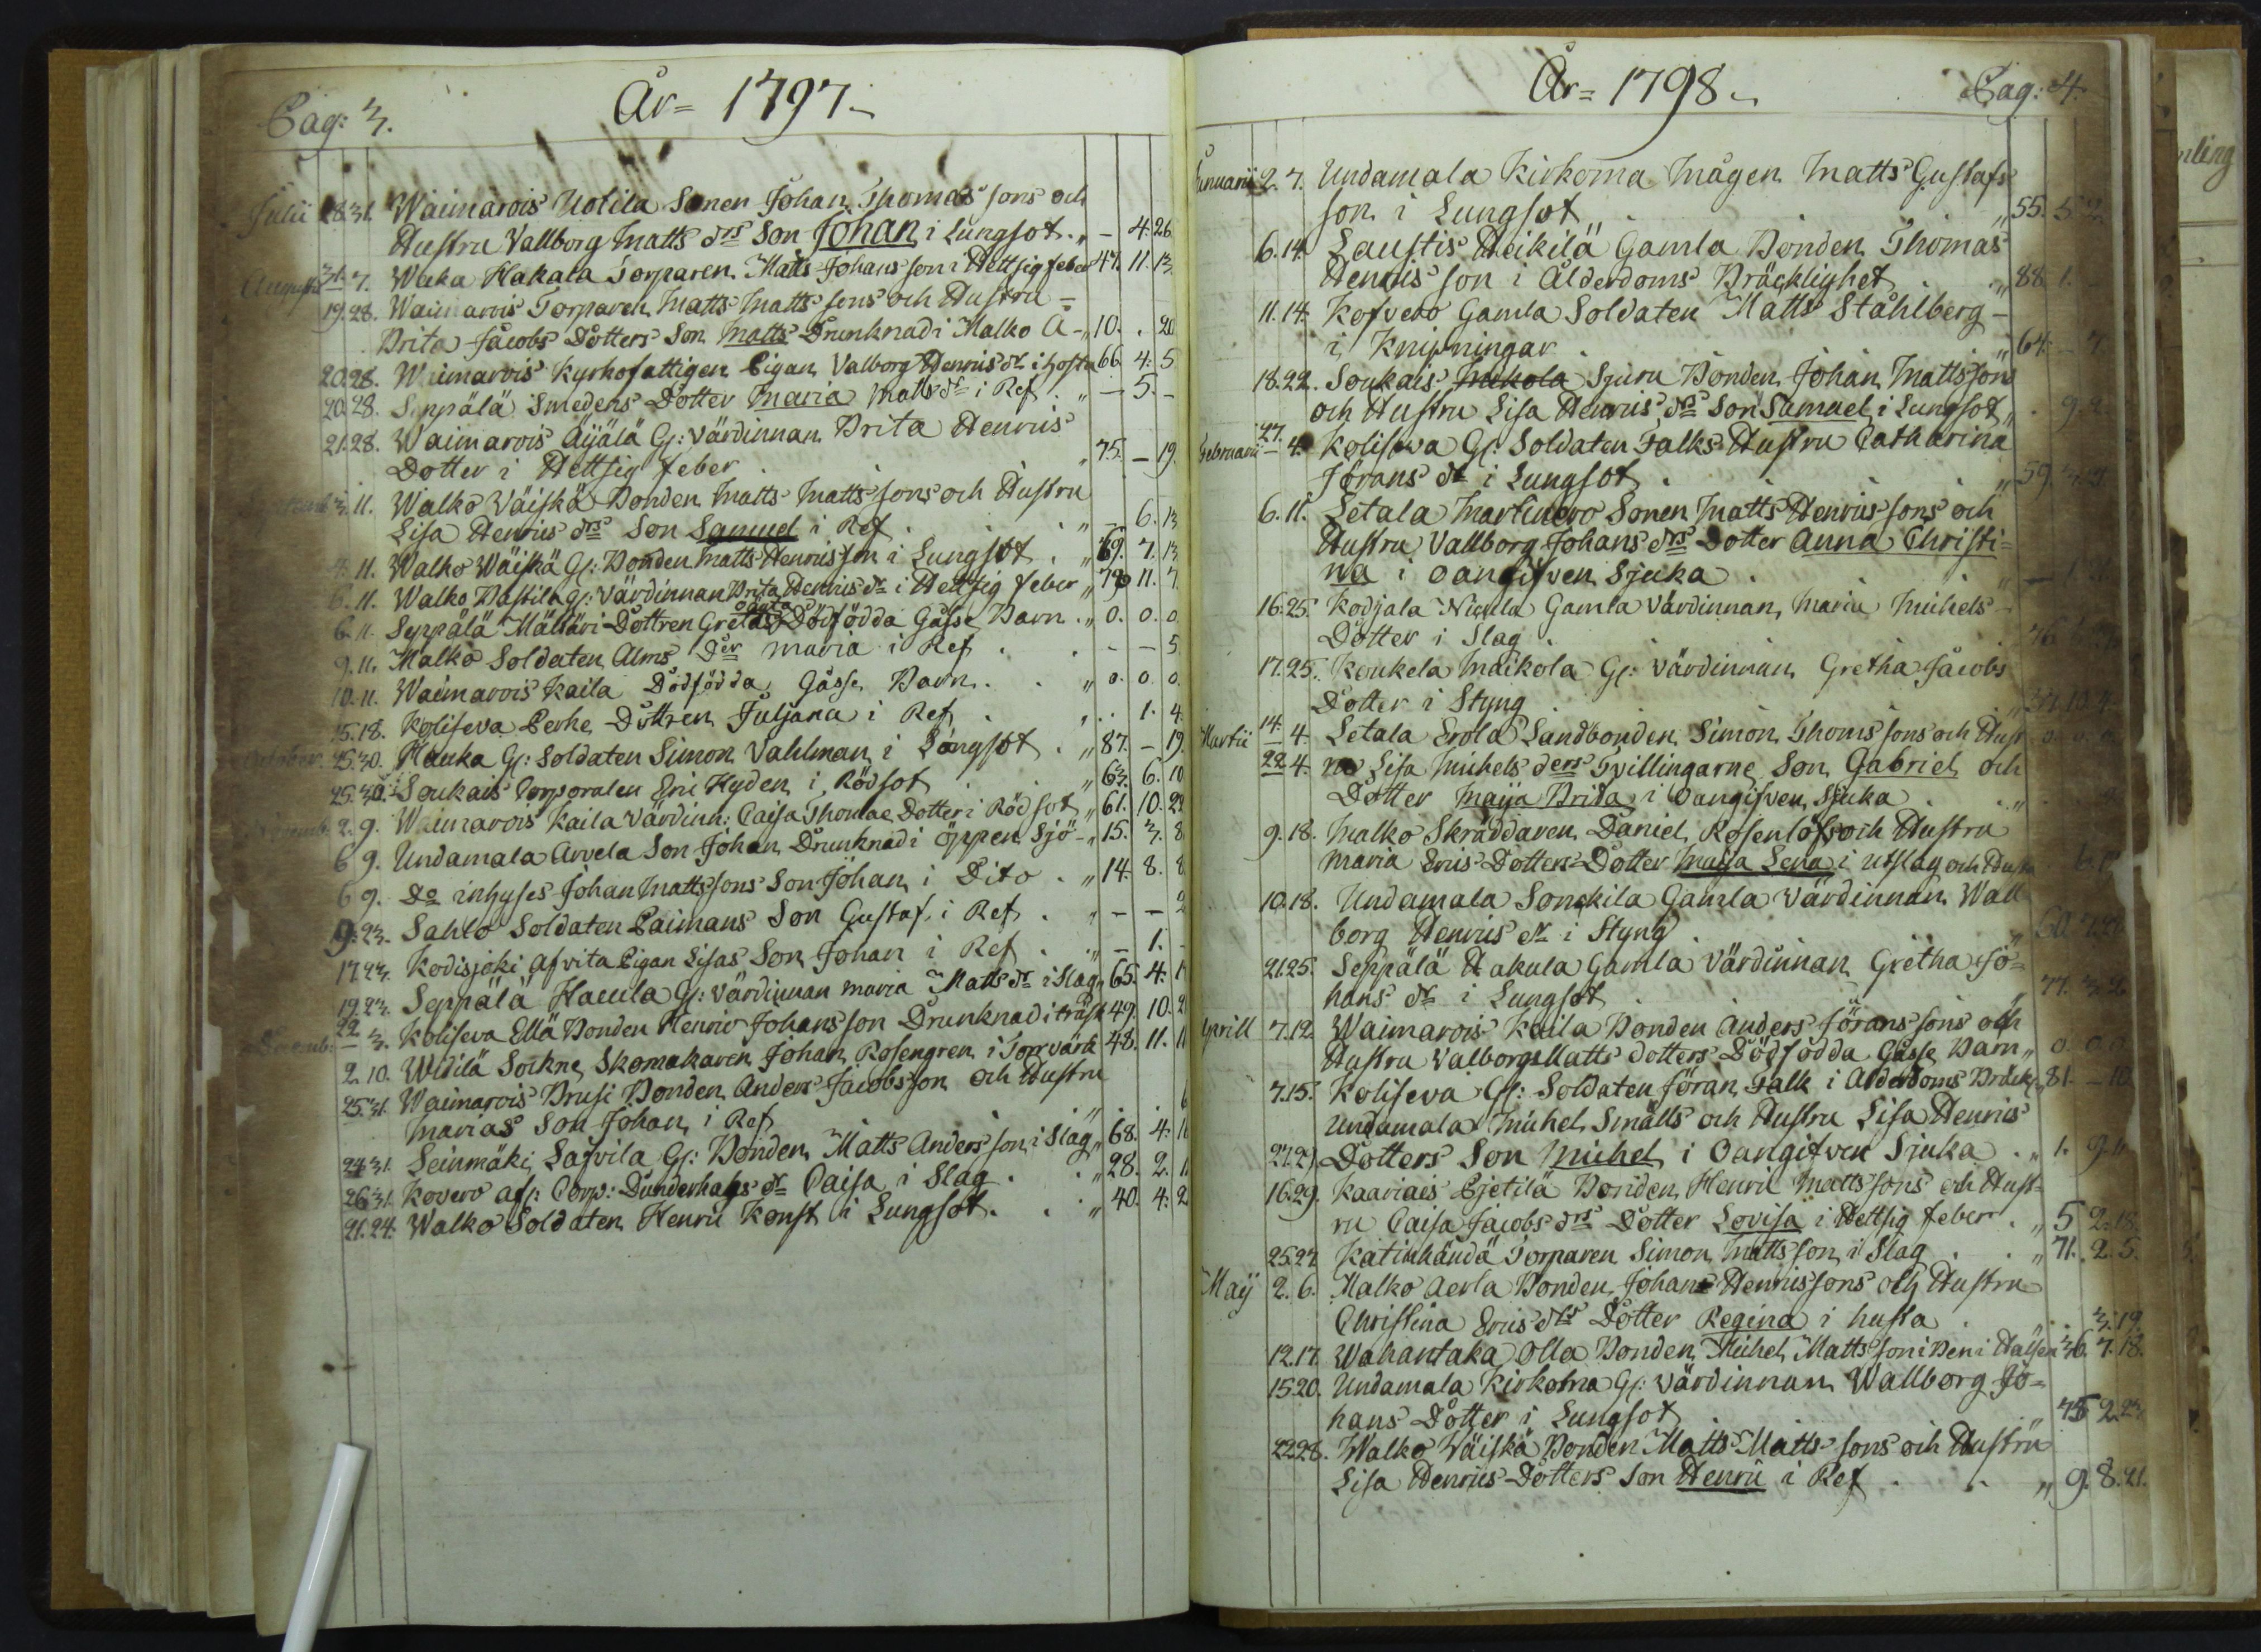 Pag: 3. År = 1797.
Julii 28. 31. Waimarois Uotila Sonen Johan Thomas sons och
Hustru Vallborg Matts drs Son Johan i Lungsot. " - 4. 26
Augusti 31. 7. Waka Hakala Torparen Matts Johans son i Hettsig feber 47. 11. 13.
19. 28. Waimarois Torparen Matts Matts sons och Hustru =
Brita Jacobs Dotters Son Matts Drunknad i Malko Å - " 10. . 20
20. 28. Waimarois Kyrkofattigen Pigan Valborg Henrics dr i hosta 66. 4. 5
20. 28. Seppälä Smedens Dotter Maria Matts dr i Ref. " - 5. -
21. 28. Waimarois Äijälä Gl: Värdinnan Brita Henrics
Dotter i Hettsig feber . " 75. - 19.
Septemb 3. 11. Walko Väiskä Bonden Matts Matts sons och Hustru
Lisa Henrics drs Son Samuel i Ref . . . " - 6. 13
4. 11. Walko Wäiskä Gl: Bonden Matts Henrics son i Lungsot . " 69. 7. 13
6. 11. Walko Pastila Gl: Värdinnan Brita Henrics dr i Hettsig feber " 78 11. 7.
6. 11. Seppälä Mältäri Dottren Gretas oägta Dödfödda Gåsse Barn . " 0. 0. 0.
9. 11. Malko Soldaten Alms Der Maria i Ref . . - - 5
10. 11. Waimarois Kaila Dödfödda Gåsse Barn . . " 0. 0. 0.
15. 18. Koliseva Perhe Dottren Juljana i Ref . " . . 1. 4.
October. 25. 30. Hauka Gl: Soldaten Simon Vahlman i Lungsot . " 87. - 19.
25. 30. Soukais Corporalen Eric Hyden i Rödsot . " 63. 6. 10
Novemb. 2. 9. Waimarois Kaila Värdinn: Caisa Thomae Dotter i Rödsot " 61. 10. 22
6 9. Undamala Arvela Son Johan Drunknad i öppen Sjö - " 15. 3. 8
6 9. Do inhyses Johan Matts sons Son Johan i Dito . " 14. 8. 8.
9. 23. Sahlo Soldaten Paimans Son Gustaf i Ref . " - - 2
17. 23. Kodisjoki Afvita Pigan Lisas Son Johan i Ref . " - 1. -
19. 23. Seppälä Haculla Gl: Värdinnan Maria Matts dr i Slag " 65. 4. 1
Decemb: 22 - 3. Koliseva Ellä Bonden Henric Johans son Drunknad i träsk 49. 10. 2
2. 10. Widilä Sockne Skomakaren Johan Rosengren i Torrvärk 48. 11. 11
25. 31. Waimarois Prusi Bonden Anders Jacobs son och Hustru
Marias Son Johan i Ref . . " . . 6
24 31. Leinmäki Lafvila Gl: Bonden Matts Anders son i Slag " 68. 4. 16
26 31. Kovero afl: Corp: Dunderhaks dr Caisa i Slag . . " 28. 2. 1
21. 24. Walko Soldaten Henric Konst i Lungsot . . " 40. 4. 2
År = 1798. Pag: 4.
Januarii 2. 7. Undamala Kirkoma Mågen Matts Gustafs
son i Lungsot . " 55. 5. 2.
6. 14. Laustis Heikilä Gamla Bonden Thomas
Henrics son i Ålderdoms Bräcklighet . " 88. 1. -
11. 14. Kofvero Gamla Soldaten Matts Ståhlberg -
i Knipningar . . . 64. - 7
18. 22. Soukais Sjuru Bonden Johan Matts sons
och Hustru Lisa Henrics drs Son Samuel i Lungsot " . 9. 2.
Februarii 27. - 4. Koliseva Gl: Soldaten Falks Hustru Catharina
Jörans dr i Lungsot . . . " 59. 3. 9
6. 11. Letala Martinero Sonen Matts Henrics sons och
Hustru Vallborg Johans drs Dotter Anna Christi=
na i oangifven Sjuka . . . " - 1. 2
16. 25. Kodjala Nicula Gamla Värdinnan Maria Michels
Dotter i Slag . . . 76
17. 25. Koukela Maikola Gl: Värdinnan Gretha Jacobs
Dotter i Styng . . . " 34. 10. 4
Martii 14. - 4. Letala Erola Landbonden Simon Thoms sons och Hust 0. 0. 0.
28 4. ru Lisa Michels ders Tvillingarne Son Gabriel och
Dotter Maija Brita i Oangifven Sjuka . . "
9. 18. Malko Skräddaren Daniel Rosenlöfs och Hustru
Maria Erics Dotters Dotter Maija Lena i utslag och Husta 6.
10. 18. Undamala Sonckila Gamla Värdinnan Wall
borg Henrics dr i Styng . . . " 60. 7. 27
21. 25. Seppälä Hakula Gamla Värdinnan Gretha Jo=
hans dr i Lungsot . . . " 77. 3. 2.
Aprill 7. 12. Waimarois Kaila Bonden Anders Jörans sons och
Hustru Valborgs Matts dotters Dödfödda Gåsse Barn " 0. 0. 0
7. 15. Koliseva Gl: Soldaten Jöran Falk i Ålderdoms Bräck " 81. - 10
Undamala Michel Smålls och Hustru Lisa Henrics
27. 29. Dotters Son Michel i Oangifven Sjuka . " 1. 9. 11
16. 29. Kaariais Pjetilä Bonden Henric Matts sons och Hust=
ru Caisa Jacobs drs Dotter Lovisa i Hettsig feber . " 5 2. 18.
25. 27. Katinhändä Torparen Simon Matts son i Slag . . " 71. 2. 5.
Maij 2. 6. Malko Aerla Bonden Johans Henrics sons och Hustru
Christina Erics drs Dotter Regina i husta . . . 3. 19.
12. 17. Wahantaka Olla Bonden Michel Matts son i Ben i Halsen 36. 7. 18.
15 20. Undamala Kirkoma Gl: Värdinnan Wallborg Jo=
hans Dotter i Lungsot . 75 2. 23.
22 28. Walko Wäiskä Bonden Matts Matts sons och Hustru
Lisa Henrics Dotters Son Henric i Ref . . " 9. 8. 21.